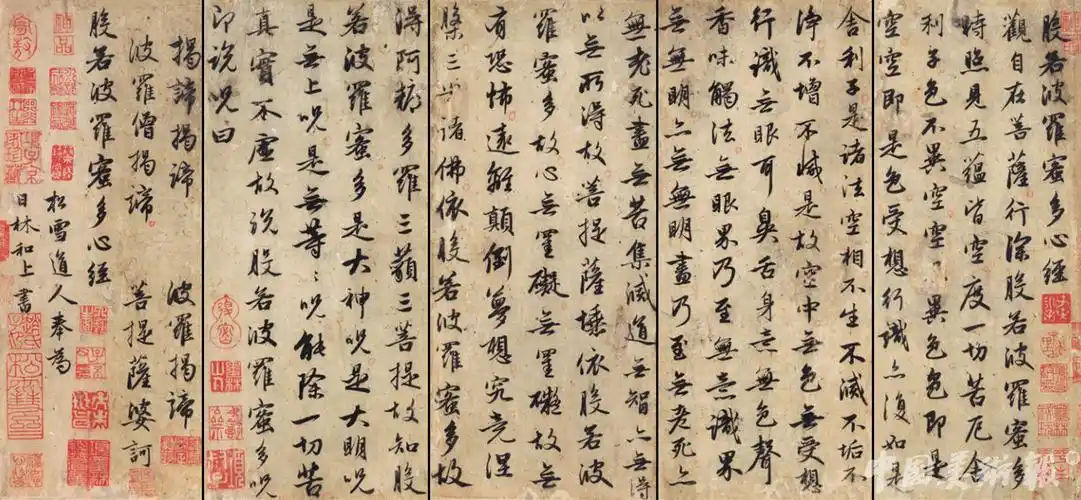 般若波羅蜜多心經
觀自在菩薩行深般若波羅蜜多
時照見五蘊皆空度一切苦厄舍
利子色不異空空異色色即是
空空即是色受想行識亦復如是
舍利子是諸法空相不生不滅不垢不
淨不增不減是故空中無色無受想
行識無眼耳鼻舌身意無色聲
香味觸法無眼界乃至無意識界
無無明亦無無明盡乃至無老死亦
無老死盡無苦集滅道無智亦無得
以無所得故菩提薩埵依般若波
羅蜜多故心無罣礙無罣礙故無
有恐怖遠離顛倒夢想究竟涅
槃三世諸佛依般若波羅蜜多故
得阿耨多羅三藐三菩提故知般
若波羅蜜多是大神呪是大明呪
是無上呪是無等〻呪能除一切苦
真實不虛故說般若波羅蜜多呪
即說呪曰
揭諦揭諦 波羅揭諦
波羅僧揭諦 菩提薩婆訶
般若波羅蜜多心經
松雪道人奉為
日林和上書
中国美術報